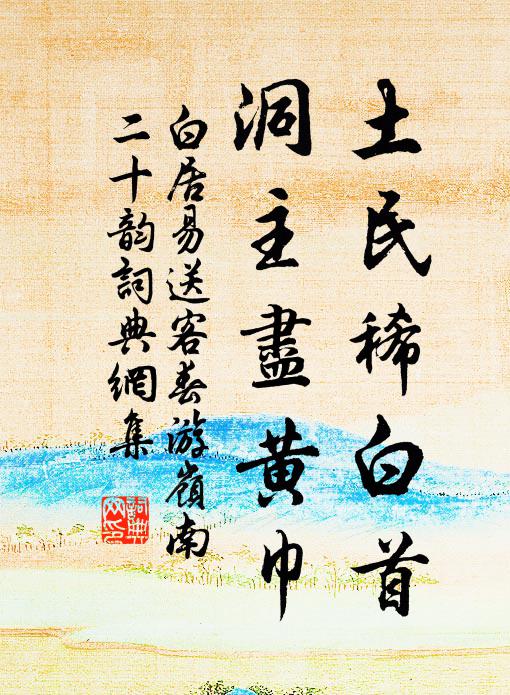 土民稀白首
洞主盡黄巾
白居易送客春游嶺南
二十韵詞典網集